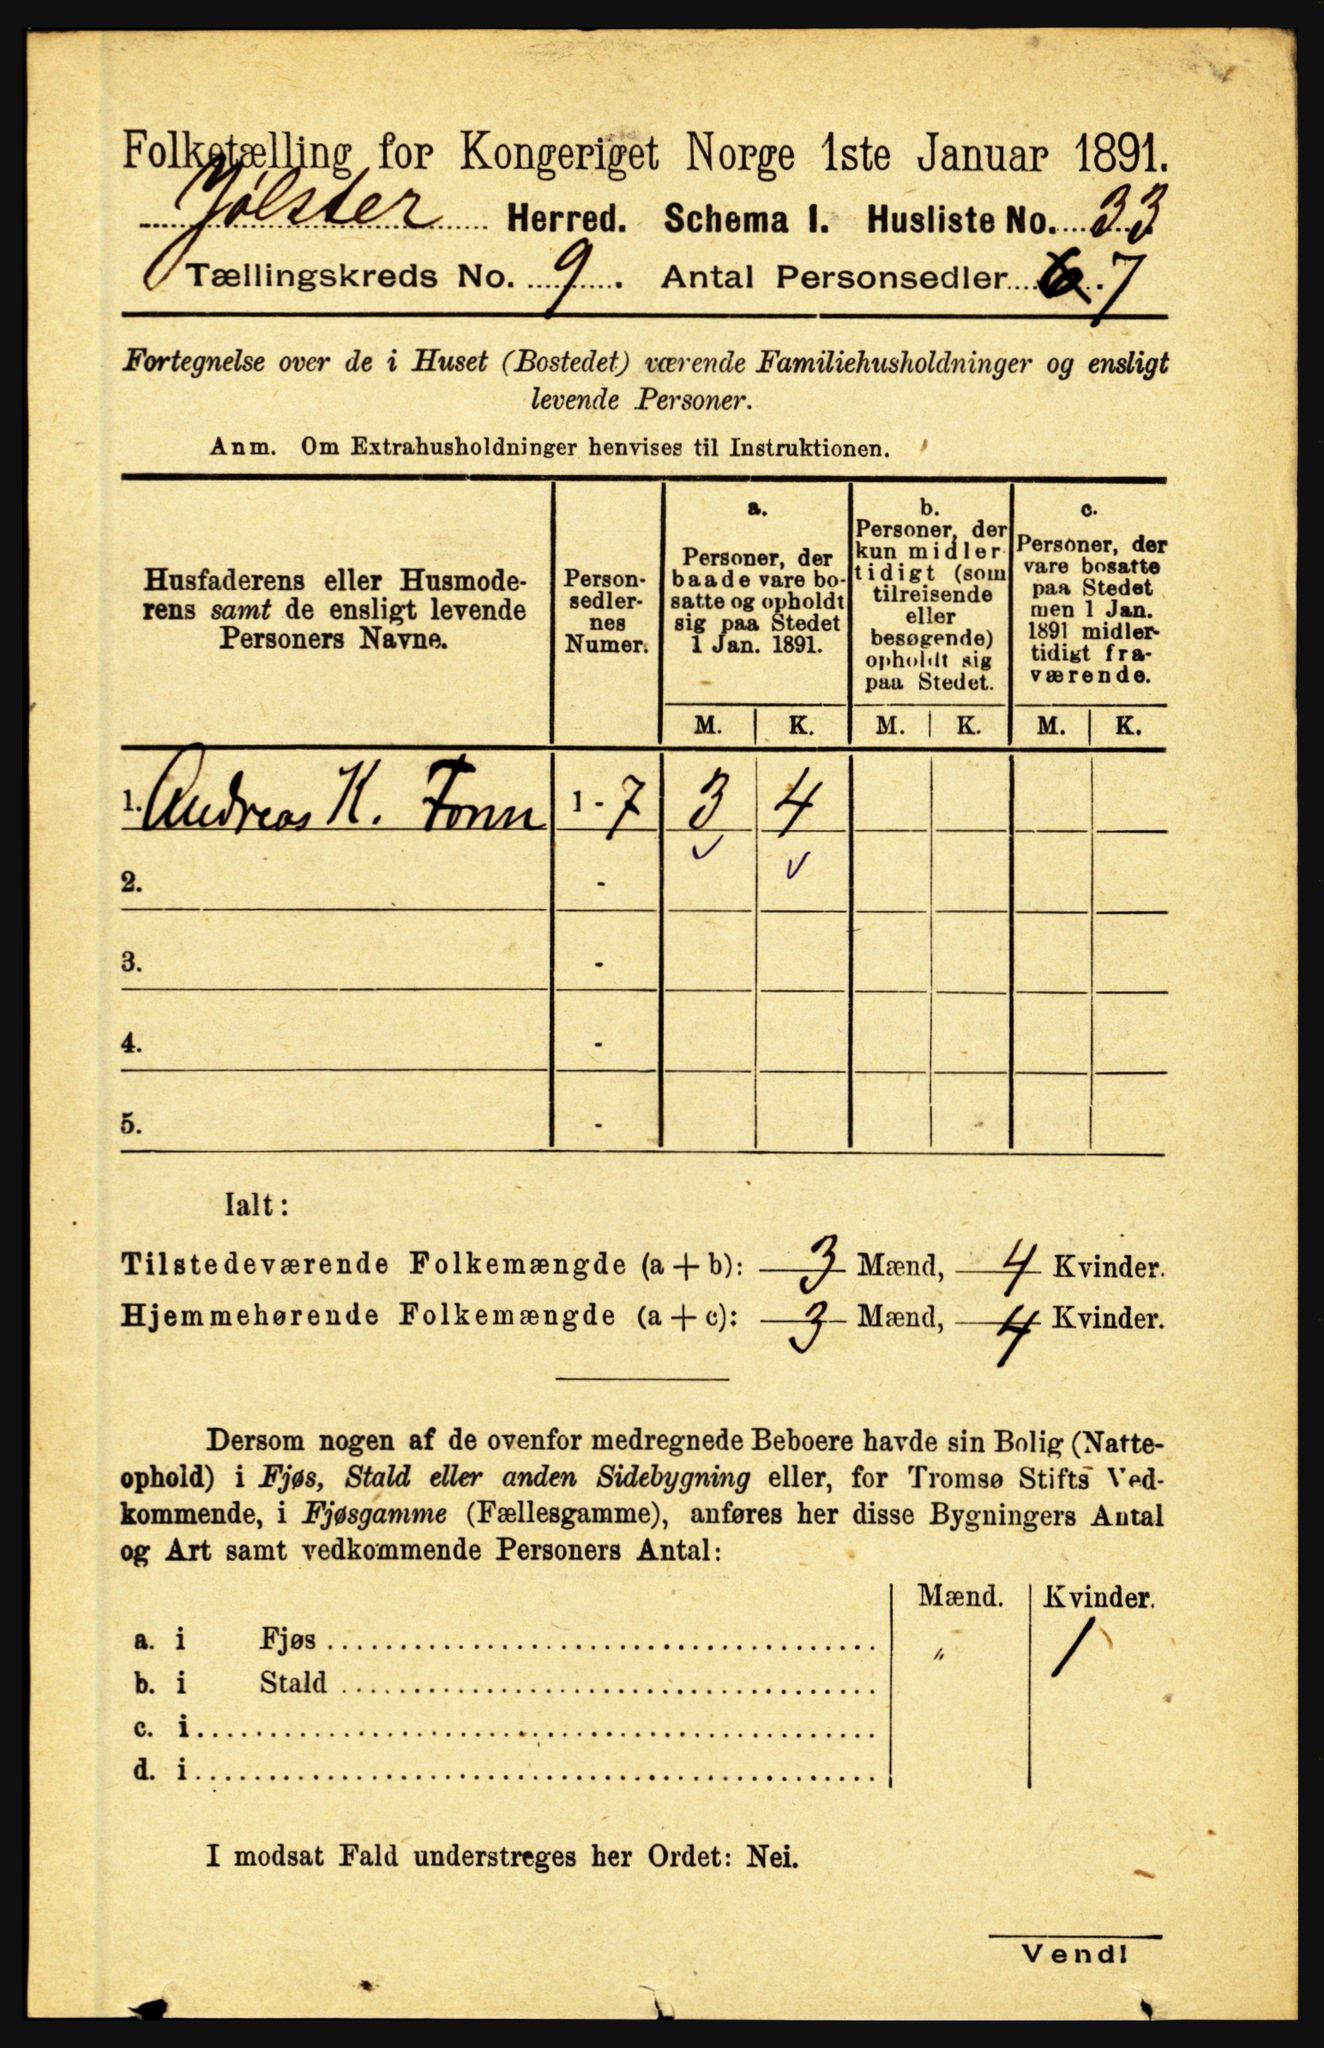 Folketælling for Kongeriget Norge 1ste Januar 1891.
Jølster Herred. Schema I. Husliste No. 33
Tællingskreds No. 9. Antal Personsedler 6 7
Fortegnelse over de i Huset (Bostedet) værende Familiehusholdninger og ensligt
levende Personer.
Anm. Om Extrahusholdninger henvises til Instruktionen.
Husfaderens eller Husmode-
rens samt de ensligt levende
Personers Navne.
Person-
sedler-
nes
Numer.
a.
Personer, der
baade vare bo-
satte og opholdt
sig paa Stedet
1 Jan. 1891.
b.
Personer, der
kun midler
tidigt (som
tilreisende
eller
besøgende)
opholdt sig
paa Stedet.
c.
Personer, der
vare bosatte
paa Stedet
men 1 Jan.
1891 midler-
tidigt fra-
værende.
M. K. M. K. M. K.
1. Andreas K. Fonn 1 - 7 3 4
2. -
3. -
4. -
5. -
Ialt:
Tilstedeværende Folkemængde (a + b): 3 Mænd, 4 Kvinder.
Hjemmehørende Folkemængde (a + c): 3 Mænd, 4 Kvinder.
Dersom nogen af de ovenfor medregnede Beboere havde sin Bolig (Natte-
ophold) i Fjøs, Stald eller anden Sidebygning eller, for Tromsø Stifts Ved-
kommende, i Fjøsgamme (Fællesgamme), anføres her disse Bygningers Antal
og Art samt vedkommende Personers Antal:
Mænd. Kvinder.
a. i Fjøs " 1
b. i Stald
c. i
d. i
I modsat Fald understreges her Ordet: Nei.
Vend!